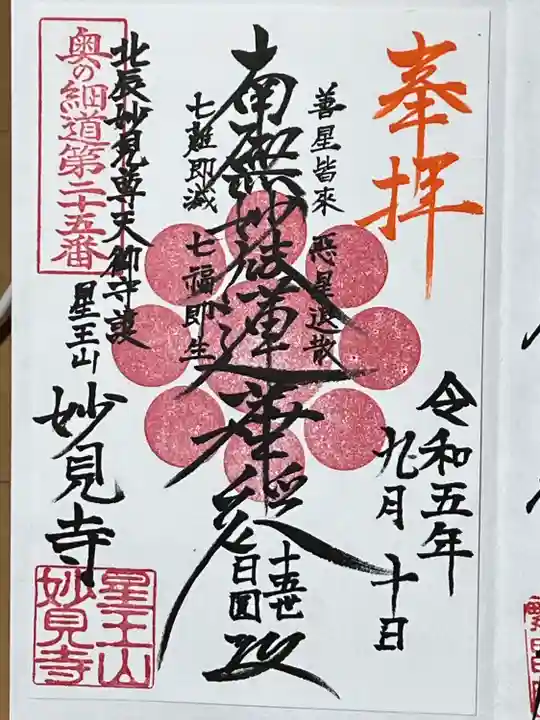 奉拝
令和五年
九月十日
善星皆來 悪星退散
南無妙法蓮華経
十五世
日圓
七難即滅 七福即生
北辰妙見尊天御守護
星王山
妙見寺
奥の細道第二十五番
星王山
妙見寺